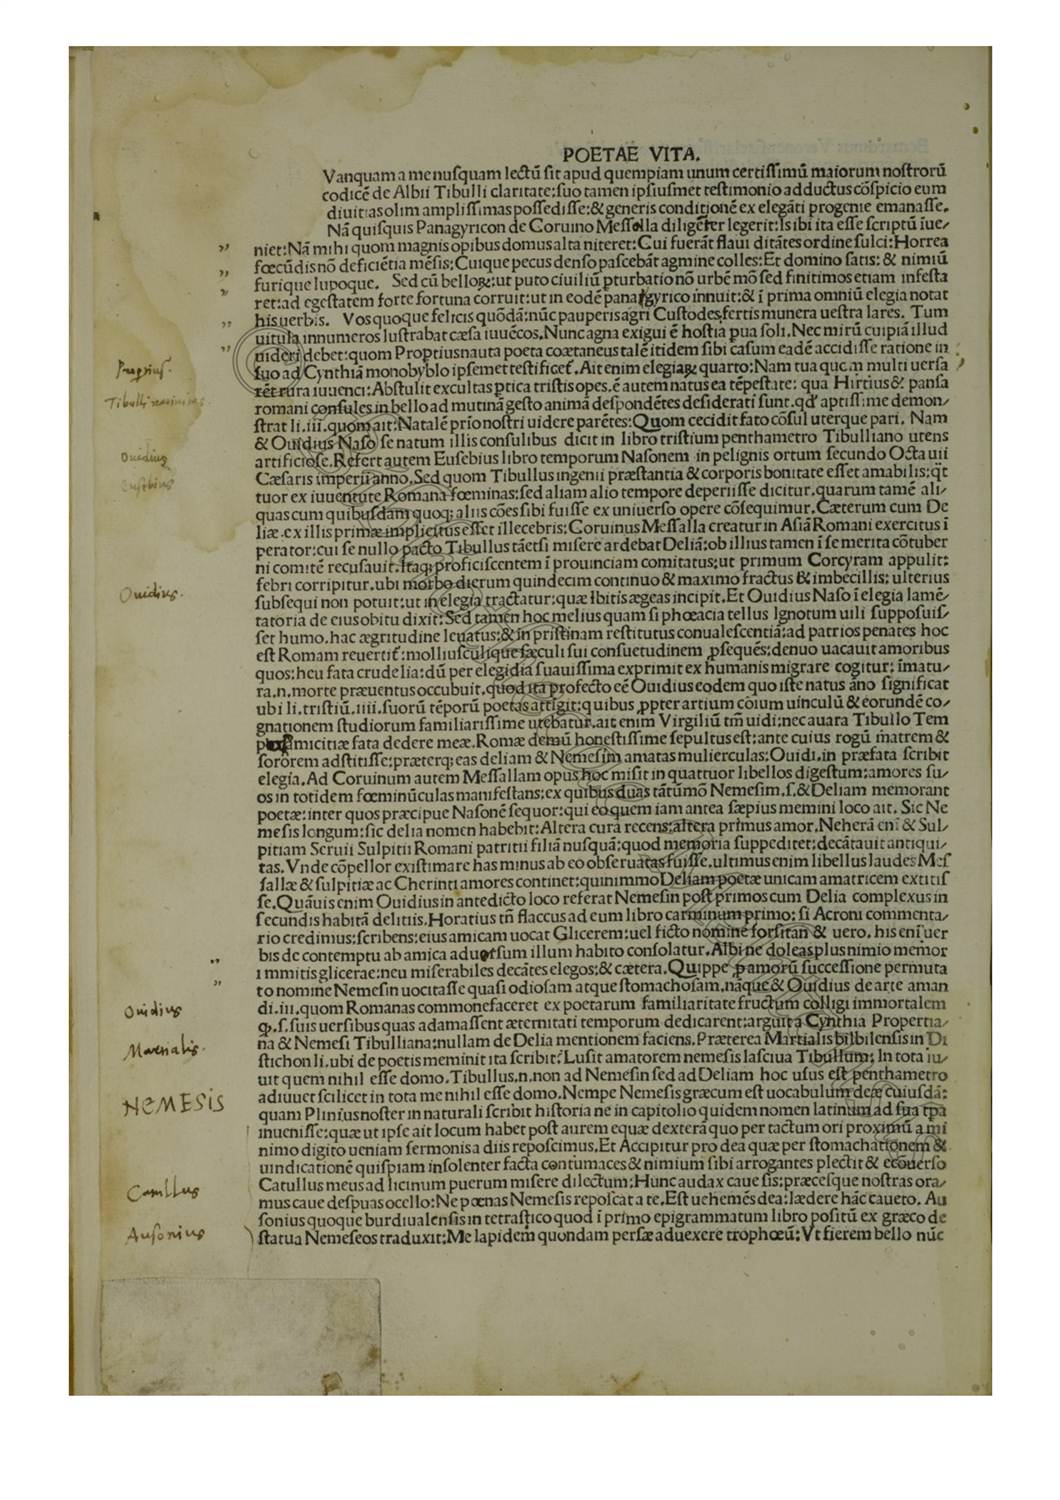 POETAE VITA.
Vanquam a me nusquam lectū sit apud quempiam unum certissimū maiorum nostrorū
codicē de Albii Tibulli claritate: suo tamen ipsiusmet testimonio adductus cōspicio eum
diuitias olim amplissimas possedisse: & generis conditionē ex elegāti progenie emanasse.
Nā quisquis Panagyricon de Coruino Messalla diligēter legerit: Is ibi ita esse scriptū iue/
niet: Nā mihi quom magnis opibus domus alta niteret: Cui fuerāt flaui ditātes ordine sulci: Horrea
fœcūdis nō deficiētia mēsis: Cuique pecus denso pascebāt agmine colles: Et domino satis: & nimiū
furique lupoque. Sed cū belloꝝ: ut puto ciuiliū pturbatio nō urbē mō sed finitimos etiam infesta
ret: ad egestatem forte fortuna corruit: ut in eodē panagyrico innuit: & ī prima omniū elegia notat
his uerbis. Vos quoque felicis quōdā: nūc pauperis agri Custodes fertis munera uestra lares. Tum
uitula innumeros lustrabat cæsa iuuēcos. Nunc agna exigui ē hostia pua soli. Nec mirū cuipiā illud
uideri debet: quom Proptius nauta poeta coætaneus talē itidem sibi casum eadē accidisse ratione in
suo ad Cynthiā monobyblo ipsemet testificet᷑. Ait enim elegiaꝝ quarto: Nam tua quom multi uersa
rēt rura iuuenci: Abstulit excultas ptica tristis opes. ē autem natus ea tēpestate: qua Hirtius & pansa
romani consules in bello ad mutinā gesto animā despondētes desiderati sunt. qd' aptissime demon/
strat li. iii. quom ait: Natalē prio nostri uidere parētes: Quom cecidit fato cōsul uterque pari. Nam
& Ouidius Naso se natum illis consulibus dicit in libro tristium penthametro Tibulliano utens
artificiose. Refert autem Eusebius libro temporum Nasonem in pelignis ortum secundo Octauii
Cæsaris imperii anno. Sed quom Tibullus ingenii præstantia & corporis bonitate esset amabilis: qt̄
tuor ex iuuentute Romana fœminas: sed aliam alio tempore deperiisse dicitur. quarum tamē ali/
quas cum quibusdam quoq; aliis cōes sibi fuisse ex uniuerso opere cōsequimur. Cæterum cum De
liæ. ex illis primæ implicitus esset illecebris: Coruinus Messalla creatur in Asiā Romani exercitus ī
perator: cui se nullo pacto Tibullus tāetsi misere ardebat Deliā: ob illius tamen ī se merita cōtuber
ni comitē recusauit. Itaq; proficiscentem ī prouinciam comitatus: ut primum Corcyram appulit:
febri corripitur. ubi morbo dierum quindecim continuo & maximo fractus & imbecillis: ulterius
subsequi non potuit: ut in elegia tractatur: quæ Ibitis ægeas incipit. Et Ouidius Naso ī elegia lamē/
tatoria de eius obitu dixit: Sed tamen hoc melius quam si phœacia tellus Ignotum uili supposuis/
set humo. hac ægritudine leuatus: & in pristinam restitutus conualescentiā: ad patrios penates hoc
est Romam reuertit᷑: molliusculique sæculi sui consuetudinem ꝓsequēs: denuo uacauit amoribus
quos: heu fata crudelia: dū per elegidia suauissima exprimit ex humanis migrare cogitur: īmatu/
ra. n. morte præuentus occubuit. quod ita profecto eē Ouidius eodem quo iste natus āno significat
ubi li. tristiū. iiii. suorū tēporū poetas attigit: quibus ꝓpter artium cōium uinculū & eorundē co/
gnationem studiorum familiarissime utebatur. ait enim Virgiliū tm̄ uidi: nec auara Tibullo Tem
pus amicitiæ fata dedere meæ. Romæ demū honestissime sepultus est: ante cuius rogū matrem &
sororem adstitisse: præterq; eas deliam & Nemesim amatas mulierculas: Ouidi. in præfata scribit
elegia. Ad Coruinum autem Messallam opus hoc misit in quattuor libellos digestum: amores su/
os in totidem fœminūculas manifestans: ex quibus duas tātūmō Nemesim. s. & Deliam memorant
poetæ: inter quos præcipue Nasonē sequor: qui eo quem iam antea sæpius memini loco ait. Sic Ne
mesis longum: sic delia nomen habebit: Altera cura recens: altera primus amor. Neherā eni & Sul/
pitiam Seruii Sulpitii Romani patritii filiā nusquā: quod memoria suppeditet: decātauit antiqui/
tas. Vnde cōpellor existimare has minus ab eo obseruatas fuisse. ultimus enim libellus laudes Mes
sallæ & sulpitiæ ac Cherinti amores continet: quinimmo Deliam poetæ unicam amatricem extitis
se. Quāuis enim Ouidius in antedicto loco referat Nemesin post primos cum Delia complexus in
secundis habitā delitiis. Horatius tn̄ flaccus ad eum libro carminum primo: si Acroni commenta/
rio credimus: scribens: eius amicam uocat Glicerem: uel ficto nomine forsitan & uero. his eni uer
bis de contemptu ab amica aduersum illum habito consolatur. Albi ne doleas plus nimio memor
immitis glicerae: neu miserabiles decātes elegos: & cætera. Quippe ꝓ amorū successione permuta
to nomine Nemesin uocitasse quasi odiosam atque stomachosam. nāque & Ouidius de arte aman
di. iii. quom Romanas commonefaceret ex poetarum familiaritate fructum colligi immortalem
ꝙ. s. suis uersibus quas adamassent æternitati temporum dedicarent: arguit a Cynthia Propertia/
na & Nemesi Tibulliana: nullam de Delia mentionem faciens. Præterea Martialis bilbilensis in Di
stichon li. ubi de poetis meminit ita scribit: Lusit amatorem nemesis lasciua Tibullum: In tota iu/
uit quem nihil esse domo. Tibullus. n. non ad Nemesin sed ad Deliam hoc usus est penthametro
adiuuet scilicet in tota me nihil esse domo. Nempe Nemesis græcum est uocabulum deæ cuiusdā:
quam Plinius noster in naturali scribit historia ne in capitolio quidem nomen latinum ad sua tpa
inuenisse: quæ ut ipse ait locum habet post aurem equæ dexterā quo per tactum ori proximū a mi
nimo digito ueniam sermonis a diis reposcimus. Et Accipitur pro dea quæ per stomachationem &
uindicationē quispiam insolenter facta contumaces & nimium sibi arrogantes plectit & econuerso
Catullus meus ad licinum puerum misere dilectum: Hunc audax caue sis: præcesque nostras ora/
mus caue despuas ocello: Ne pœnas Nemesis reposcat a te. Est uehemēs dea: lædere hāc caueto. Au
sonius quoque burdiualensis in tetrastico quod ī primo epigrammatum libro positū ex græco de
statua Nemeseos traduxit: Me lapidem quondam persæ aduexere trophœū: Vt fierem bello nūc
Propertius.
Ouidius
Eusebius
Ouidius.
Ouidius
Martialis.
NEMESIS
Catullus
Ausonius